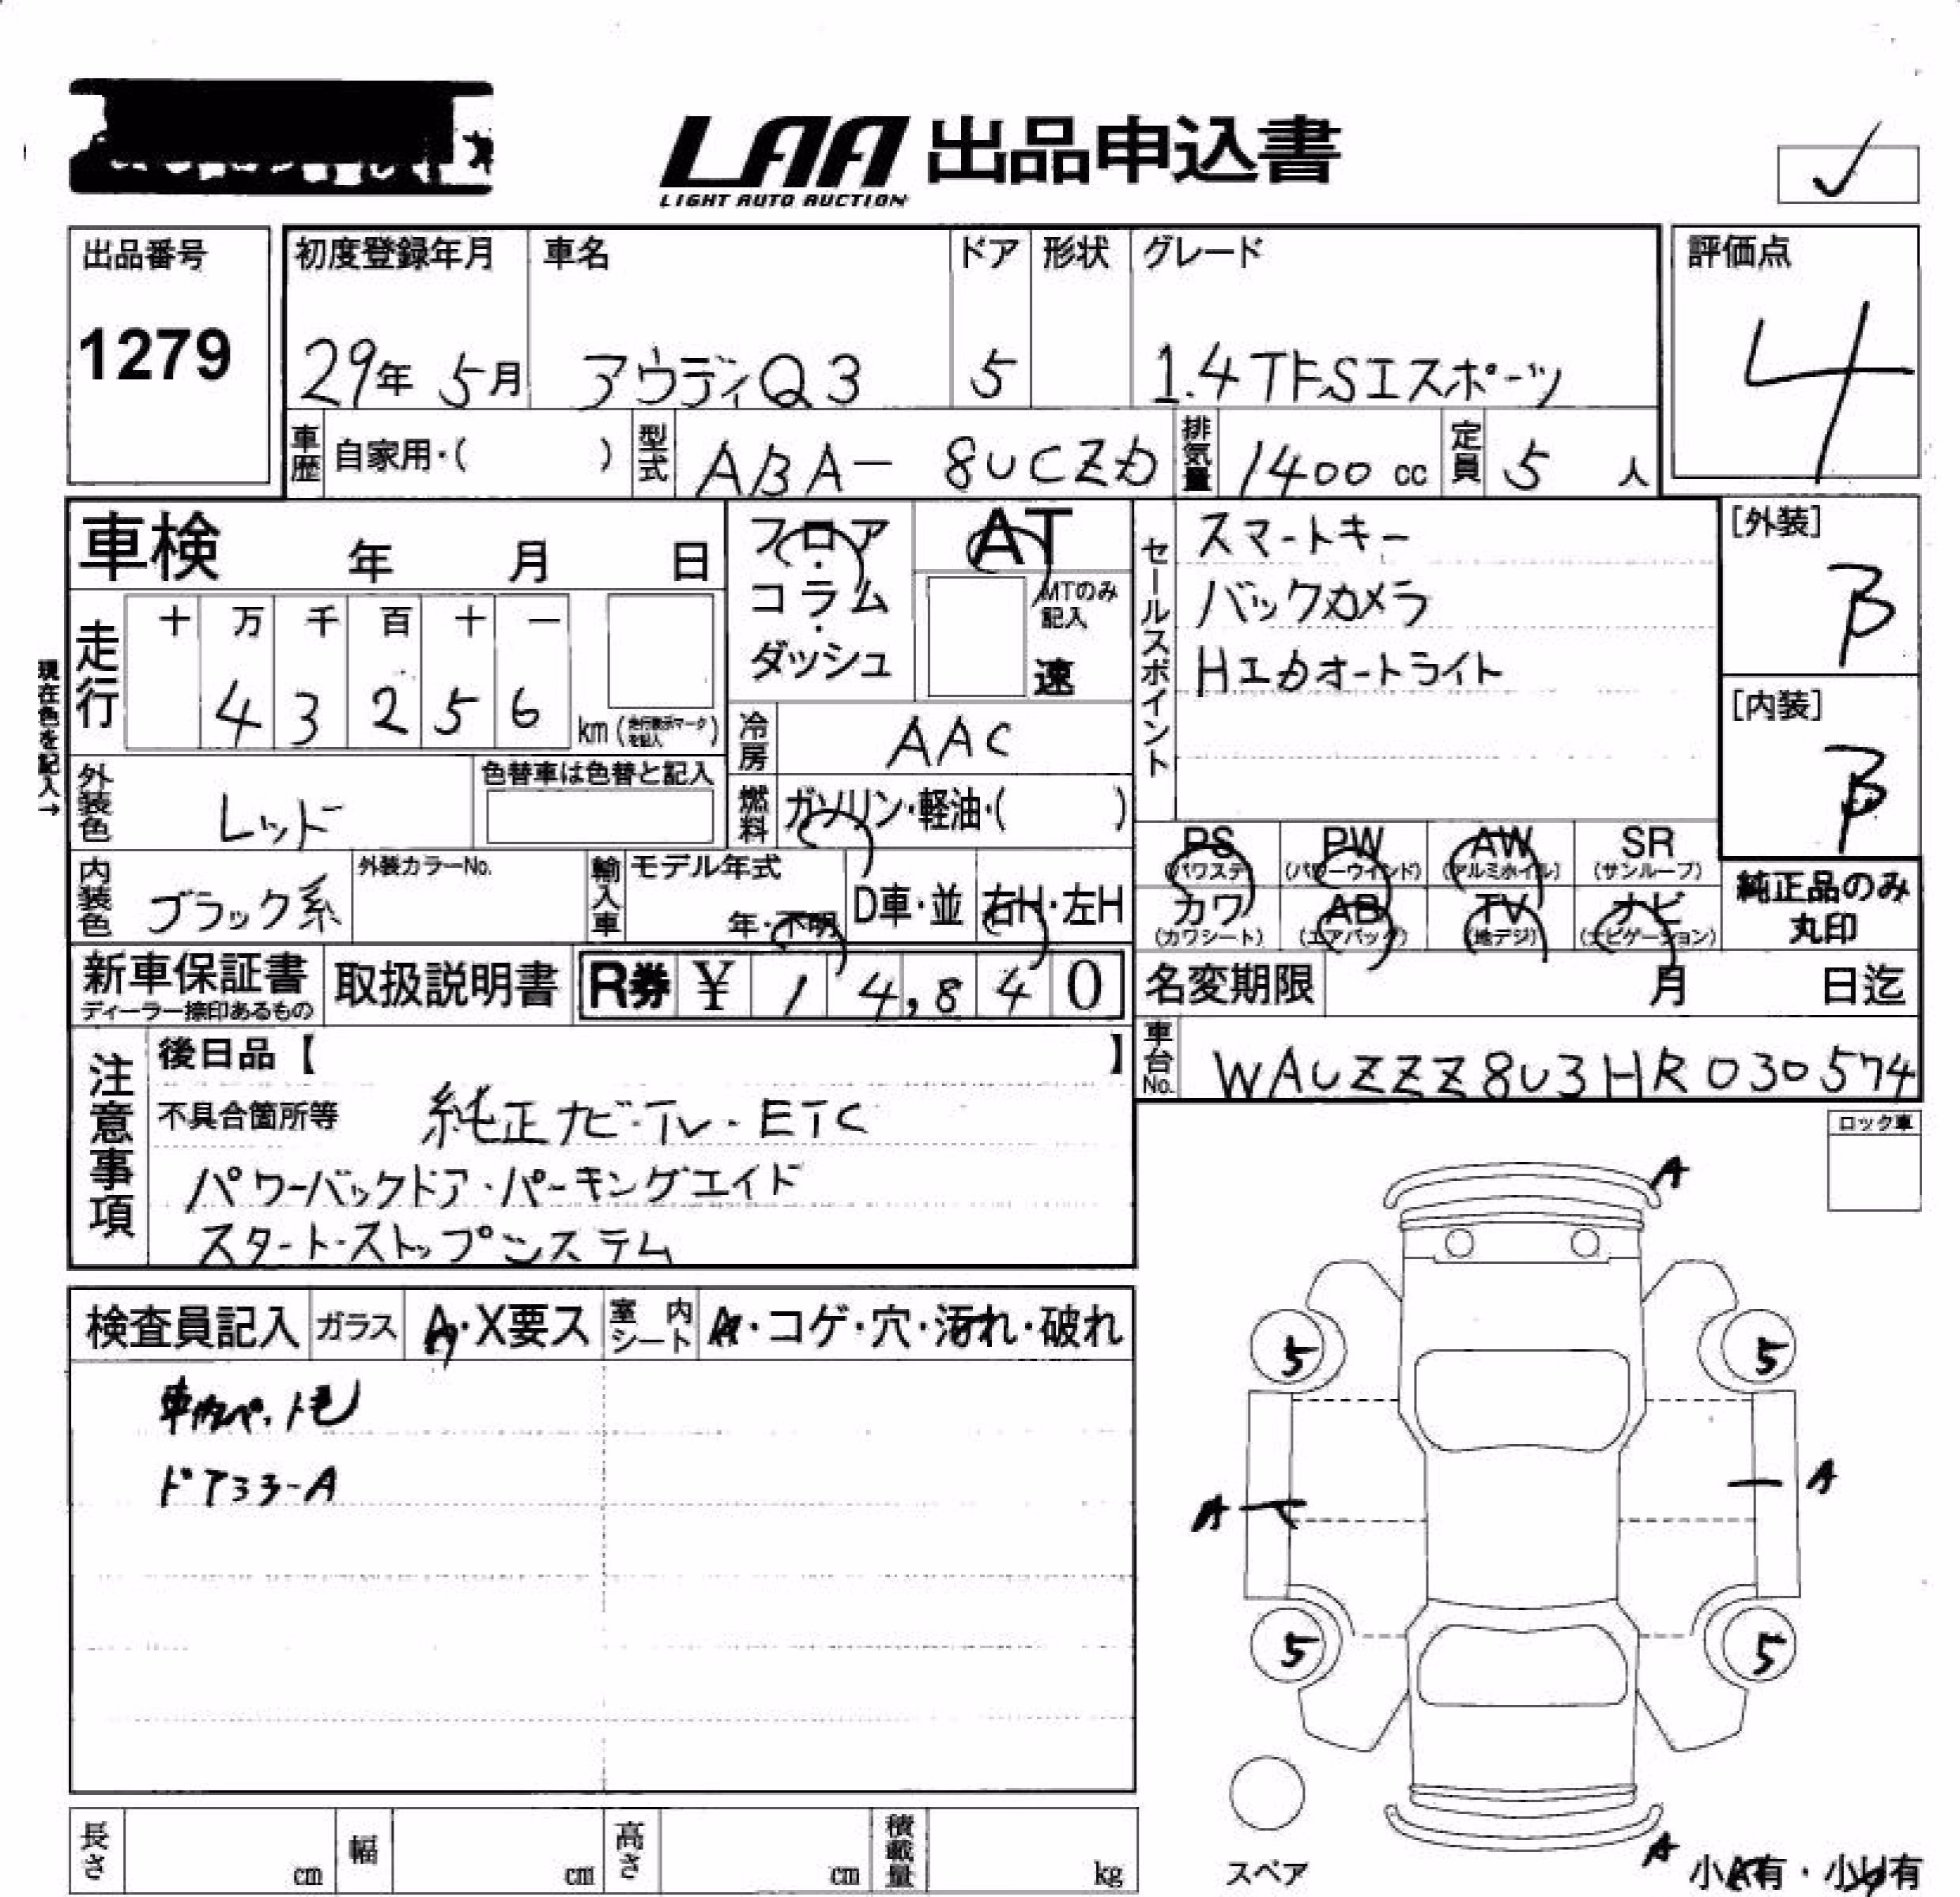 LAA 出品申込書
LIGHT AUTO AUCTION
出品番号
1279
初度登録年月 車名 ドア 形状 グレード
29年 5月 アウディQ3 5 1.4TFSIスポーツ
評価点
4
車歴 自家用・( ) 型式 ABA- 8UCZD 排気量 1400 cc 定員 5 人
車検 年 月 日
フロア・コラム・ダッシュ
AT
MTのみ記入
速
セールスポイント
スマートキー
バックカメラ
HIDオートライト
[外装]
B
[内装]
B
現在色を記入→
走行 十 万 千 百 十 一
4 3 2 5 6 km (走行表示マークを記入)
冷房 AAC
外装色 レッド 色替車は色替と記入
燃料 ガソリン・軽油・( )
PS (パワステ) PW (パワーウインド) AW (アルミホイル) SR (サンルーフ)
カワ (カワシート) AB (エアバッグ) TV (地デジ) ナビ (ナビゲーション)
純正品のみ
丸印
内装色 ブラック系 外装カラーNo. 輸入車 モデル年式 年・不明 D車・並 右H・左H
新車保証書 ディーラー捺印あるもの 取扱説明書 R券 ¥ 1 4,8 4 0
名変期限 月 日迄
車台No. WAUZZZ8U3HR030574
注意事項
後日品【 】
不具合箇所等 純正ナビ・TV・ETC
パワーバックドア・パーキングエイド
スタート・ストップシステム
ロック車
検査員記入 ガラス A・X要ス 室内シート A・コゲ・穴・汚れ・破れ
車内ペット毛
ドアミラーA
A
5 5
A A
5 5
A
スペア
小A有・小U有
長さ cm 幅 cm 高さ cm 積載量 kg